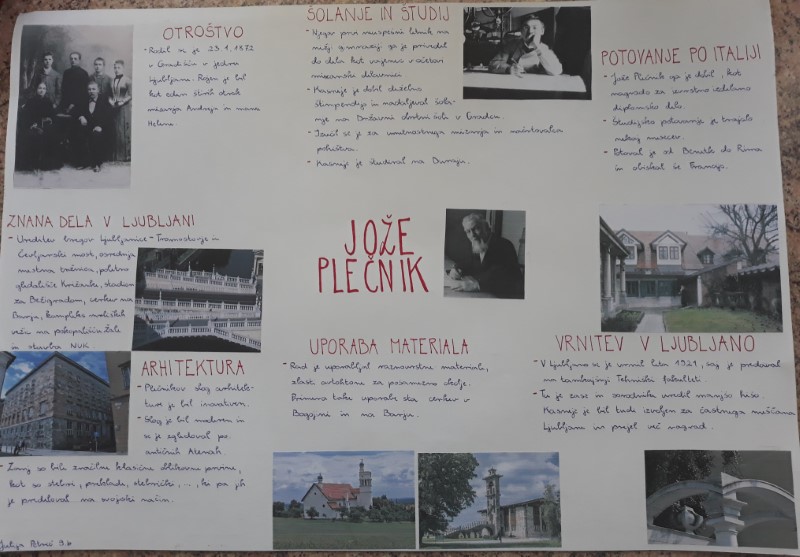 OTROŠTVO
- Rodil se je 23. 1. 1872
v Gradišču v jedru
Ljubljane. Rojen je bil
kot eden štirih otrok
mizarja Andreja in mame
Helene.
ŠOLANJE IN ŠTUDIJ
- Njegov prvi neuspešni letnik na
nižji gimnaziji ga je privedel
do dela kot vajenca v očetovi
mizarski delavnici.
- Kasneje je dobil deželno
štipendijo in nadaljeval šola-
nje na Državni obrtni šoli v Gradcu.
- Izučil se je za umetnostnega mizarja in načrtovalca
pohištva.
- Kasneje je študiral na Dunaju.
POTOVANJE PO ITALIJI
- Jože Plečnik ga je dobil, kot
nagrado za izvrstno izdelano
diplomsko delo.
- Študijsko potovanje je trajalo
nekaj mesecev.
- Potoval je od Benetk do Rima
in obiskal še Francijo.
ZNANA DELA V LJUBLJANI
- Ureditev bregov Ljubljanice - Tromostovje in
Čevljarski most, osrednja
mestna tržnica, poletno
gledališče Križanke, stadion
za Bežigradom, cerkev na
Barju, kompleks mrliških
vež na pokopališču Žale
in stavba NUK.
JOŽE
PLEČNIK
ARHITEKTURA
- Plečnikov slog arhitek-
ture je bil inovativen.
- Slog je bil moderen in
se je zgledoval po
antičnih Atenah.
- Zanj so bile značilne klasične oblikovne prvine,
kot so stebri, preklade, stebrički, ..., ki pa jih
je predeloval na svojski način.
UPORABA MATERIALA
- Rad je uporabljal raznovrstne materiale,
zlasti avtohtone za posamezno okolje.
Primera take uporabe sta cerkev v
Bogojini in na Barju.
VRNITEV V LJUBLJANO
- V Ljubljano se je vrnil leta 1921, saj je predaval
na tamkajšnji Tehniški fakulteti.
- Tu je zase in sorodnike uredil manjšo hišo.
Kasneje je bil tudi izvoljen za častnega meščana
Ljubljane in prejel več nagrad.
Julija 9. b